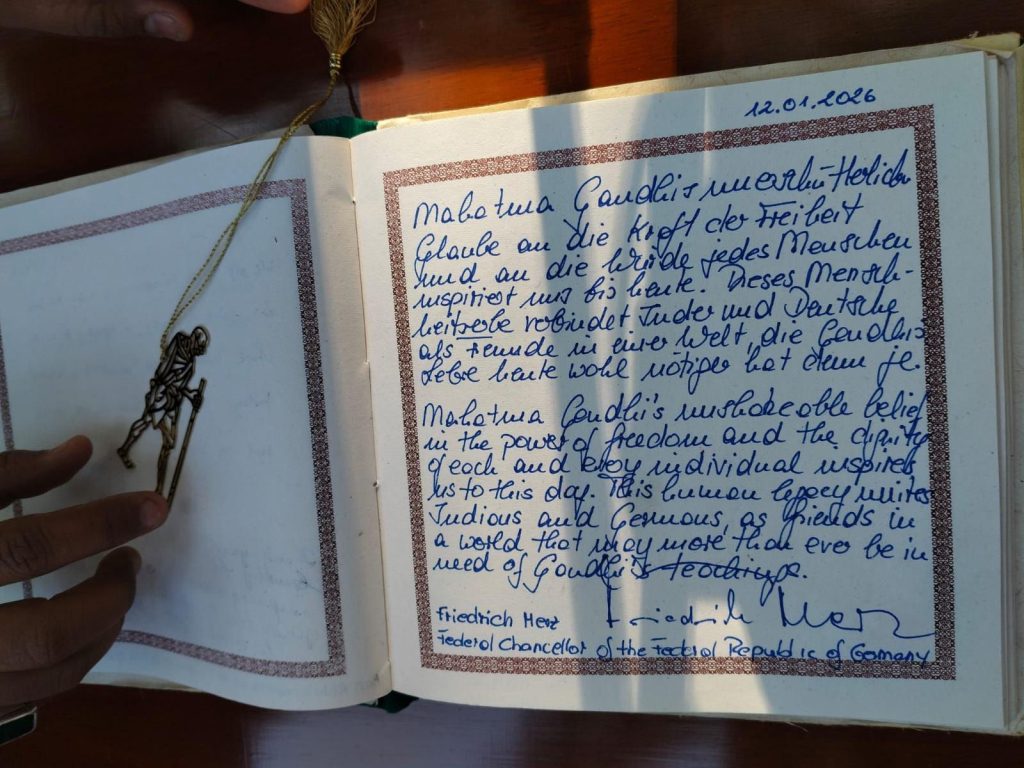 12.01.2026
Mahatma Gandhis unerschütterlicher
Glaube an die Kraft der Freiheit
und an die Würde jedes Menschen
inspiriert uns bis heute. Dieses Mensch-
heitserbe verbindet Inder und Deutsche
als Freunde in einer Welt, die Gandhis
Lehre heute wohl nötiger hat denn je.
Mahatma Gandhi's unshakeable belief
in the power of freedom and the dignity
of each and every individual inspires
us to this day. This human legacy unites
Indians and Germans, as friends in
a world that may more than ever be in
need of Gandhi's teachings.
Friedrich Merz Friedrich Merz
Federal Chancellor of the Federal Republic of Germany